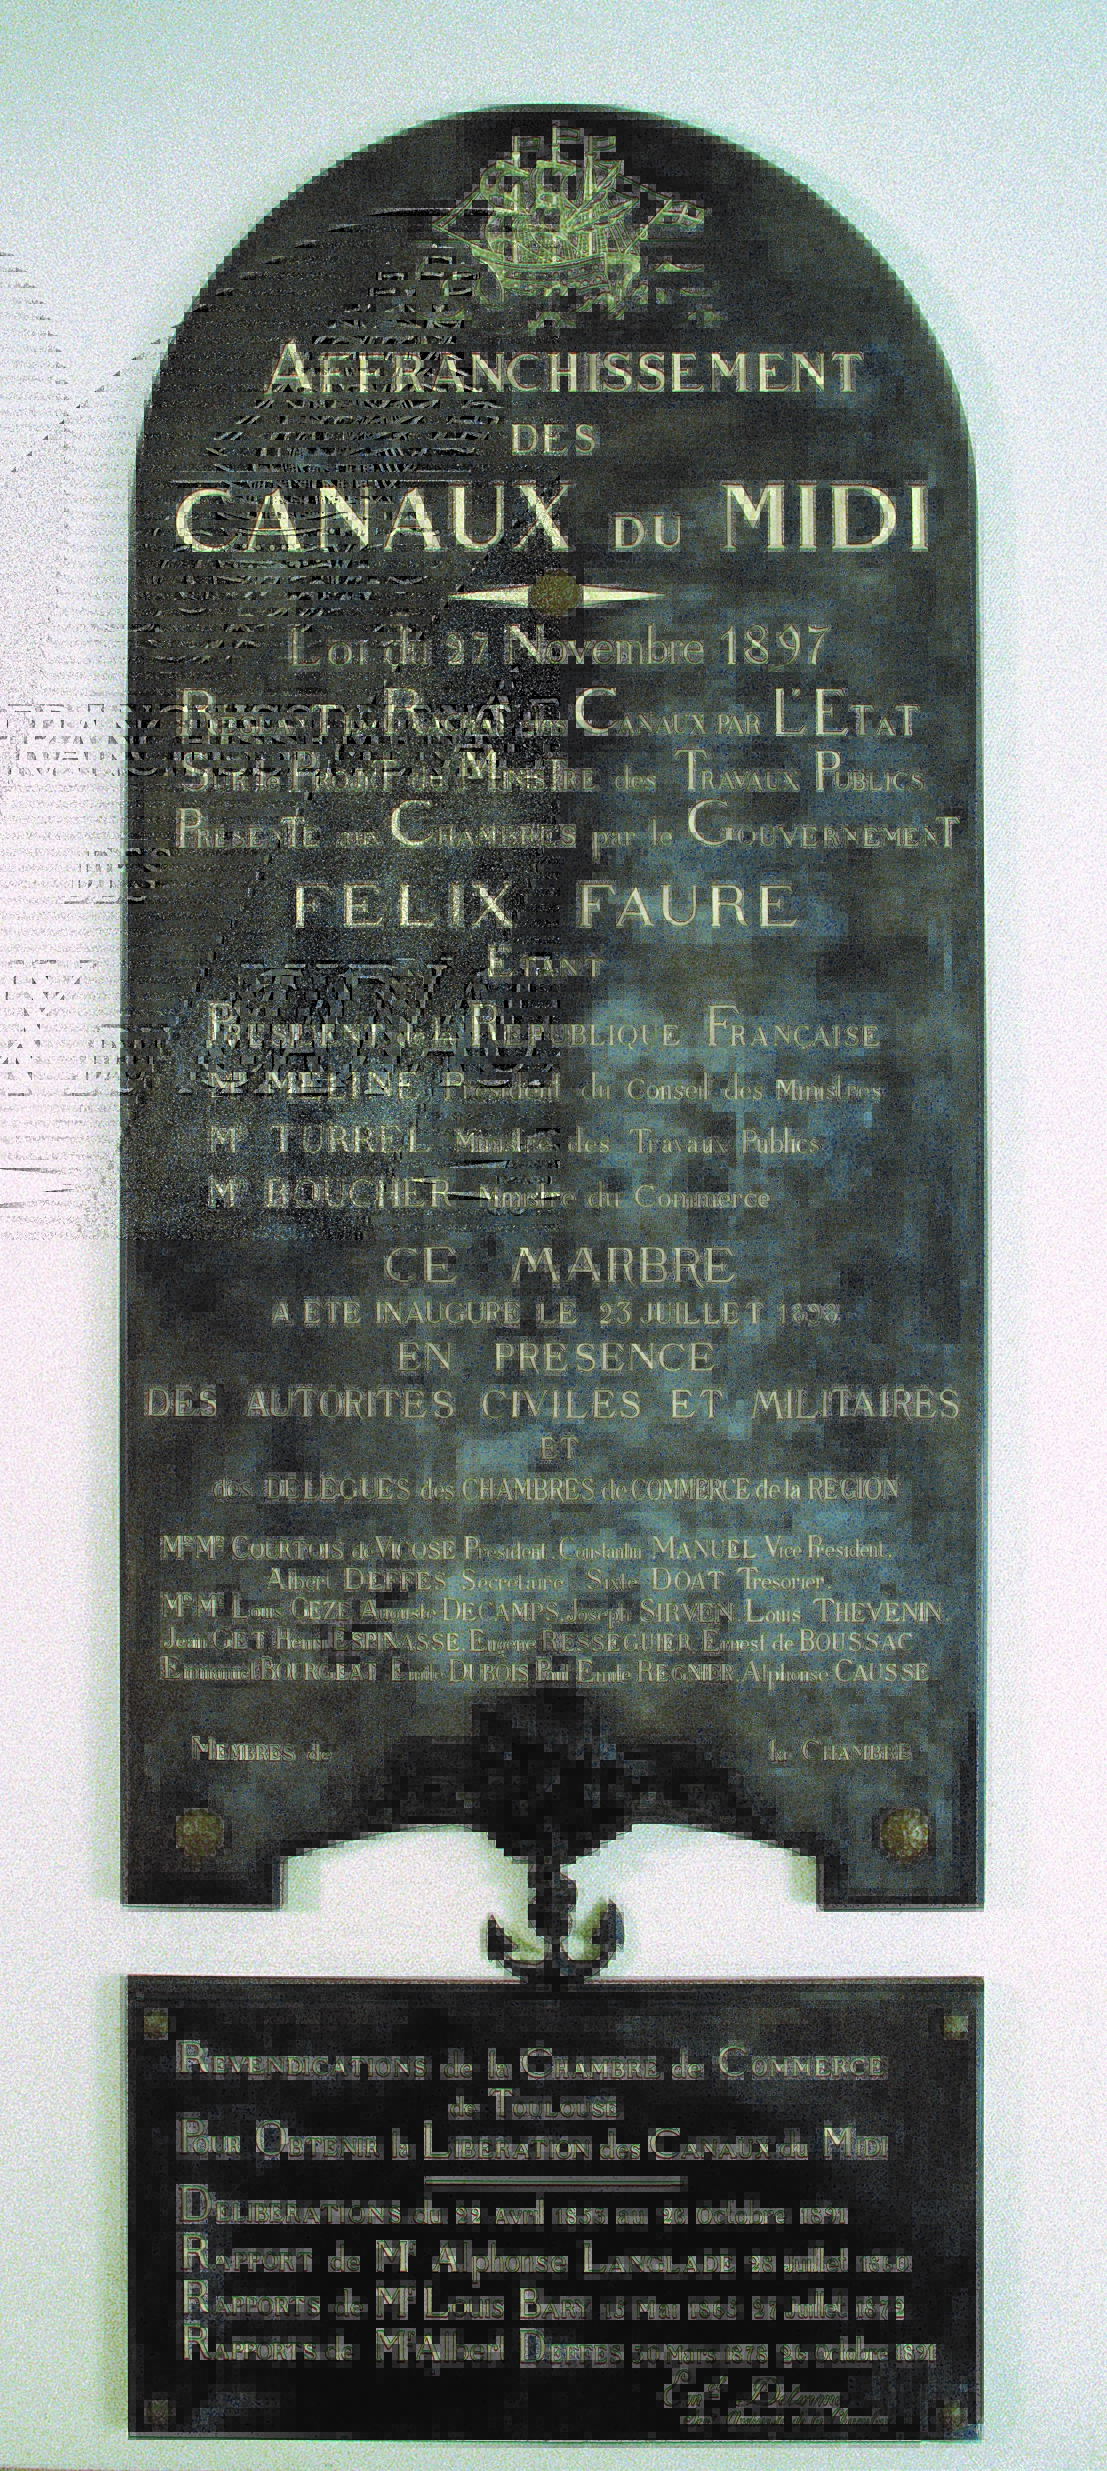 AFFRANCHISSEMENT
DES
CANAUX DU MIDI
Loi du 27 Novembre 1897
RACHAT des CANAUX PAR L'ETAT
SUR le PROJET du MINISTRE des TRAVAUX PUBLICS
PRESENTE aux CHAMBRES par le GOUVERNEMENT
FELIX FAURE
ETANT
PRESIDENT de la REPUBLIQUE FRANÇAISE
Mr MELINE President du Conseil des Ministres
Mr TURREL Ministre des Travaux Publics
Mr BOUCHER Ministre du Commerce
CE MARBRE
A ETE INAUGURE LE 23 JUILLET 1898
EN PRESENCE
DES AUTORITES CIVILES ET MILITAIRES
ET
des DELEGUES des CHAMBRES de COMMERCE de la REGION
Mrs Mrs COURTOIS de VIÇOSE President. Constantin MANUEL Vice President.
Albert DEFFES Secretaire Sixte DOAT Tresorier.
Mrs Mrs Louis OEZE Auguste DECAMPS. Joseph SIRVEN. Louis THEVENIN
Jean GET Henri ESPINASSE. Eugene RESSEGUIER. Ernest de BOUSSAC
Emmanuel BOURGEAT Emile DUBOIS, Paul Emile REGNIER. Alphonse CAUSSE
MEMBRES de la CHAMBRE
REVENDICATIONS de la CHAMBRE de COMMERCE
de TOULOUSE
POUR OBTENIR la LIBERATION des CANAUX du MIDI
DELIBERATIONS du 22 Avril 1853 au 26 Octobre 1891
RAPPORT de Mr Alphonse LANGLADE 28 Juillet
RAPPORTS de Mr LOUIS BARY Juillet
RAPPORTS de Mr Albert DEFFES Mars 1878 Octobre 1891